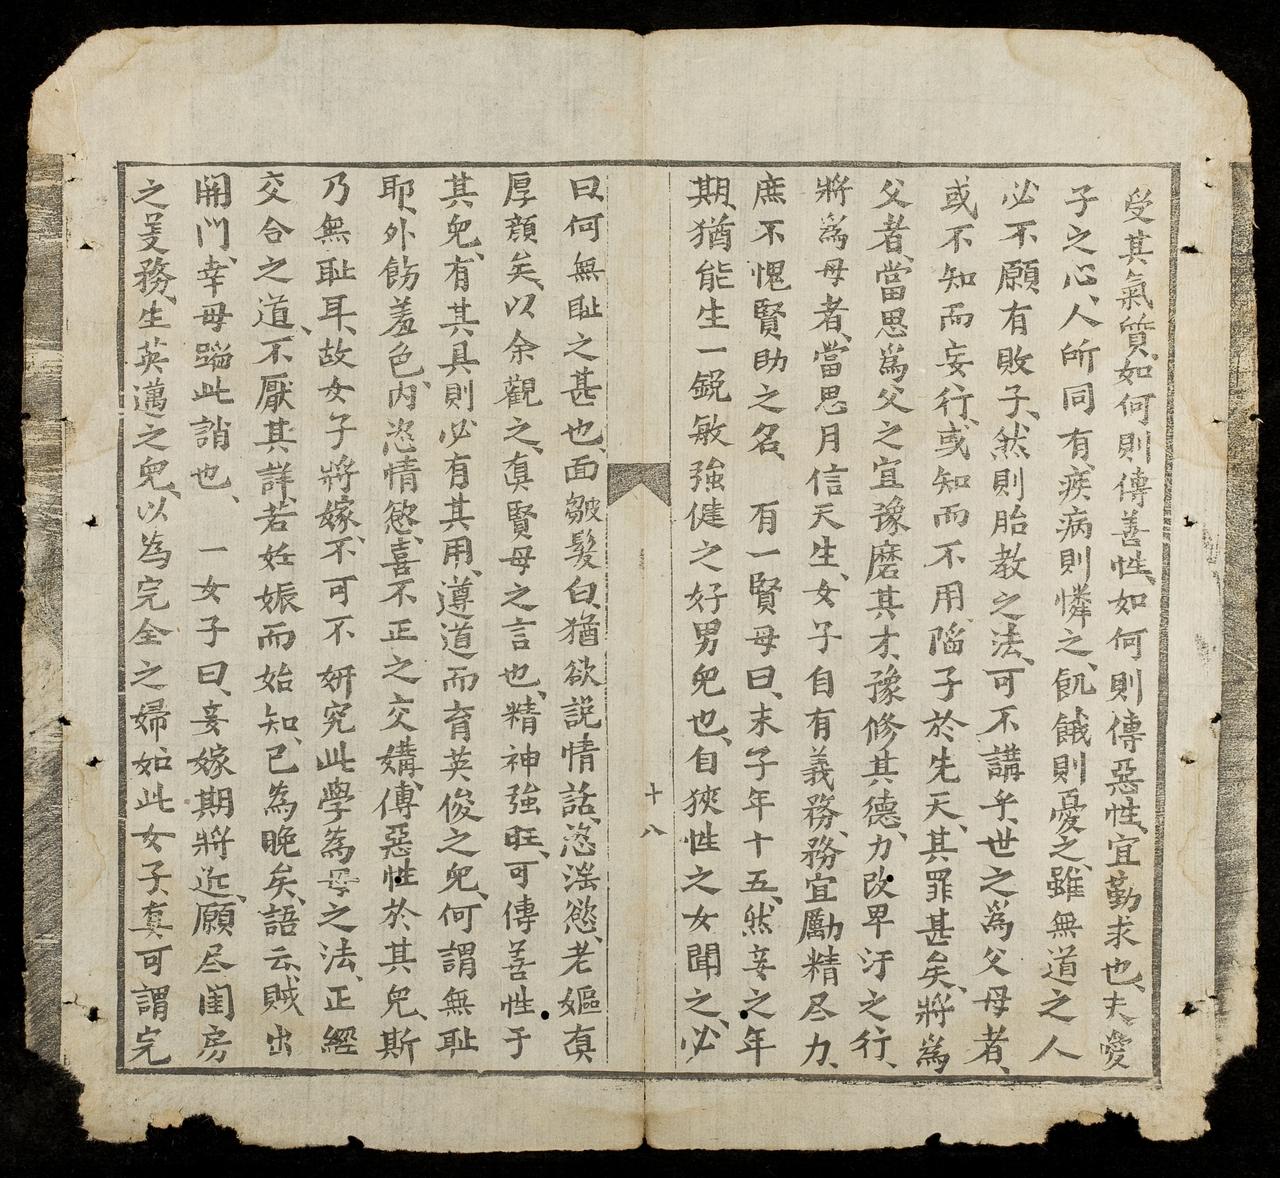 受其氣質、如何則傳善性、如何則傳惡性、宜勤求也、夫愛
子之心、人所同有、疾病則憐之、飢餓則憂之、雖無道之人
必不願有敗子、然則胎教之法、可不講乎、世之為父母者、
或不知而妄行、或知而不用、陷子於先天、其罪甚矣、將為
父者、當思為父之宜豫磨其才、豫修其德、力改卑汙之行、
將為母者、當思月信天生、女子自有義務、務宜勵精尽力、
庶不愧賢助之名、　有一賢母曰、末子年十五、然妾之年
期、猶能生一銳敏強健之好男兒也、自狹性之女聞之、必
十八
曰、何無耻之甚也、面皺髮白、猶欲説情話、恣滛慾、老嫗真
厚顔矣、以余觀之、真賢母之言也、精神強旺、可傳善性于
其兒、有其具則必有其用、遵道而育英俊之兒、何謂無耻
耶、外飭羞色、内恣情慾、喜不正之交媾、傳惡性於其兒、斯
乃無耻耳、故女子將嫁、不可不研究此學為母之法、正經
交合之道、不厭其詳、若姙娠而始知、已為晚矣、語云、賊出
開門、幸毋蹈此誚也、　一女子曰、妾嫁期將近、願尽閨房
之美務、生英邁之兒、以為完全之婦如此女子、真可謂完